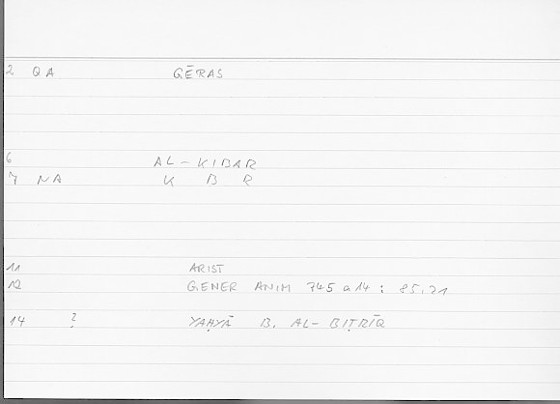 2 QA GĒRAS
6 AL-KIBAR
7 NA K B R
11 ARIST
12 GENER ANIM 745 a 14 : 85.21
14 ? YAḤYĀ B. AL-BIṬRĪQ